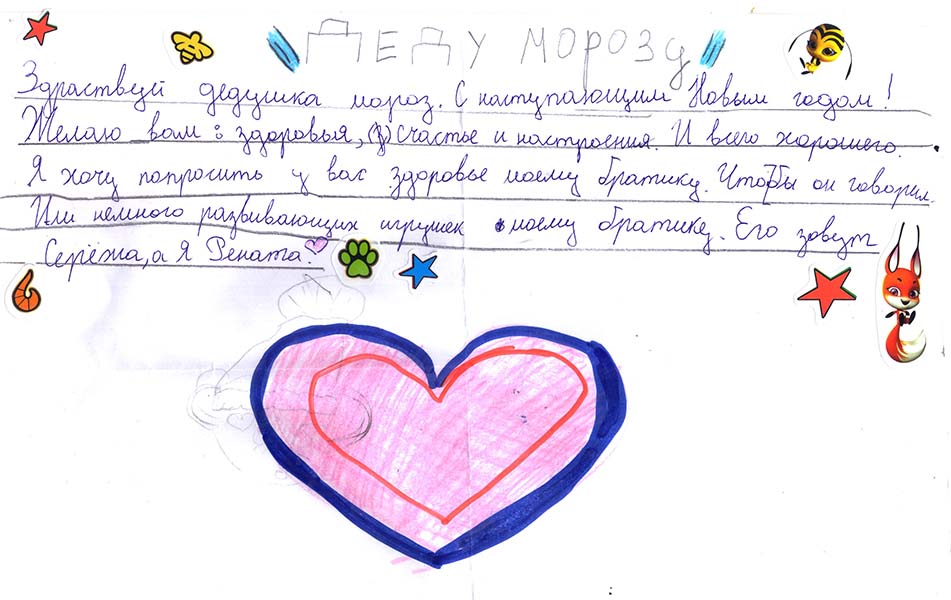 ДЕДУ МОРОЗУ
Здраствуй дедушка мороз. С наступающим Новым годом!
Желаю вам: здоровья, счастье и настроения. И всего хорошего.
Я хочу попросить у вас здоровье моему братику. Чтобы он говорил.
Или немного развивающих игрушек моему братику. Его зовут
Серёжа, а я Рената.